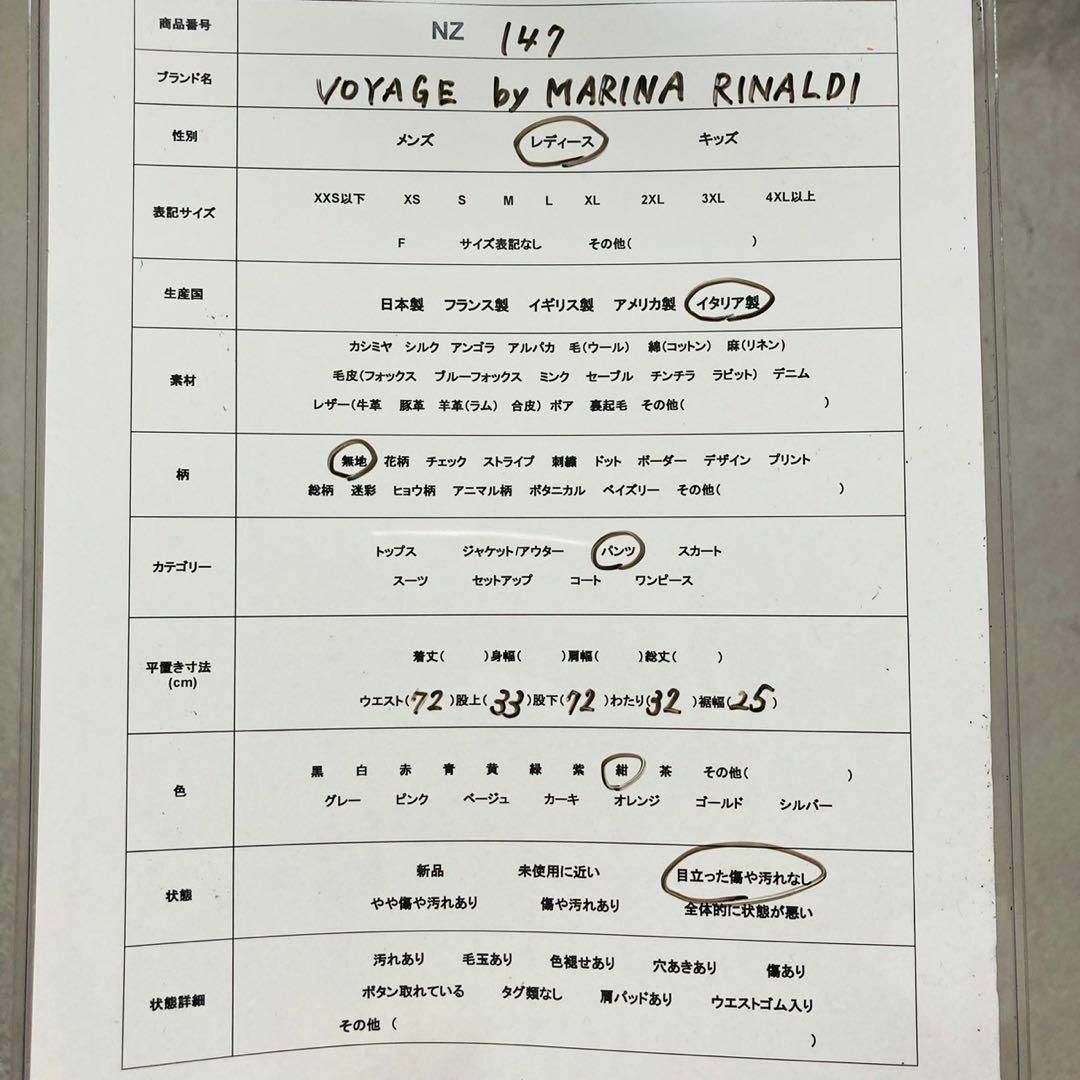 商品番号 NZ 147
ブランド名 VOYAGE by MARINA RINALDI
性別 メンズ レディース キッズ
表記サイズ XXS以下 XS S M L XL 2XL 3XL 4XL以上
F サイズ表記なし その他( )
生産国 日本製 フランス製 イギリス製 アメリカ製 イタリア製
素材 カシミヤ シルク アンゴラ アルパカ 毛(ウール) 綿(コットン) 麻(リネン)
毛皮(フォックス ブルーフォックス ミンク セーブル チンチラ ラビット) デニム
レザー(牛革 豚革 羊革(ラム) 合皮) ボア 裏起毛 その他( )
柄 無地 花柄 チェック ストライプ 刺繍 ドット ボーダー デザイン プリント
総柄 迷彩 ヒョウ柄 アニマル柄 ボタニカル ペイズリー その他( )
カテゴリー トップス ジャケット/アウター パンツ スカート
スーツ セットアップ コート ワンピース
平置き寸法 (cm) 着丈( )身幅( )肩幅( )総丈( )
ウエスト(72)股上(33)股下(72)わたり(32)裾幅(25)
色 黒 白 赤 青 黄 緑 紫 紺 茶 その他( )
グレー ピンク ベージュ カーキ オレンジ ゴールド シルバー
状態 新品 未使用に近い 目立った傷や汚れなし
やや傷や汚れあり 傷や汚れあり 全体的に状態が悪い
状態詳細 汚れあり 毛玉あり 色褪せあり 穴あきあり 傷あり
ボタン取れている タグ類なし 肩パッドあり ウエストゴム入り
その他 ( )